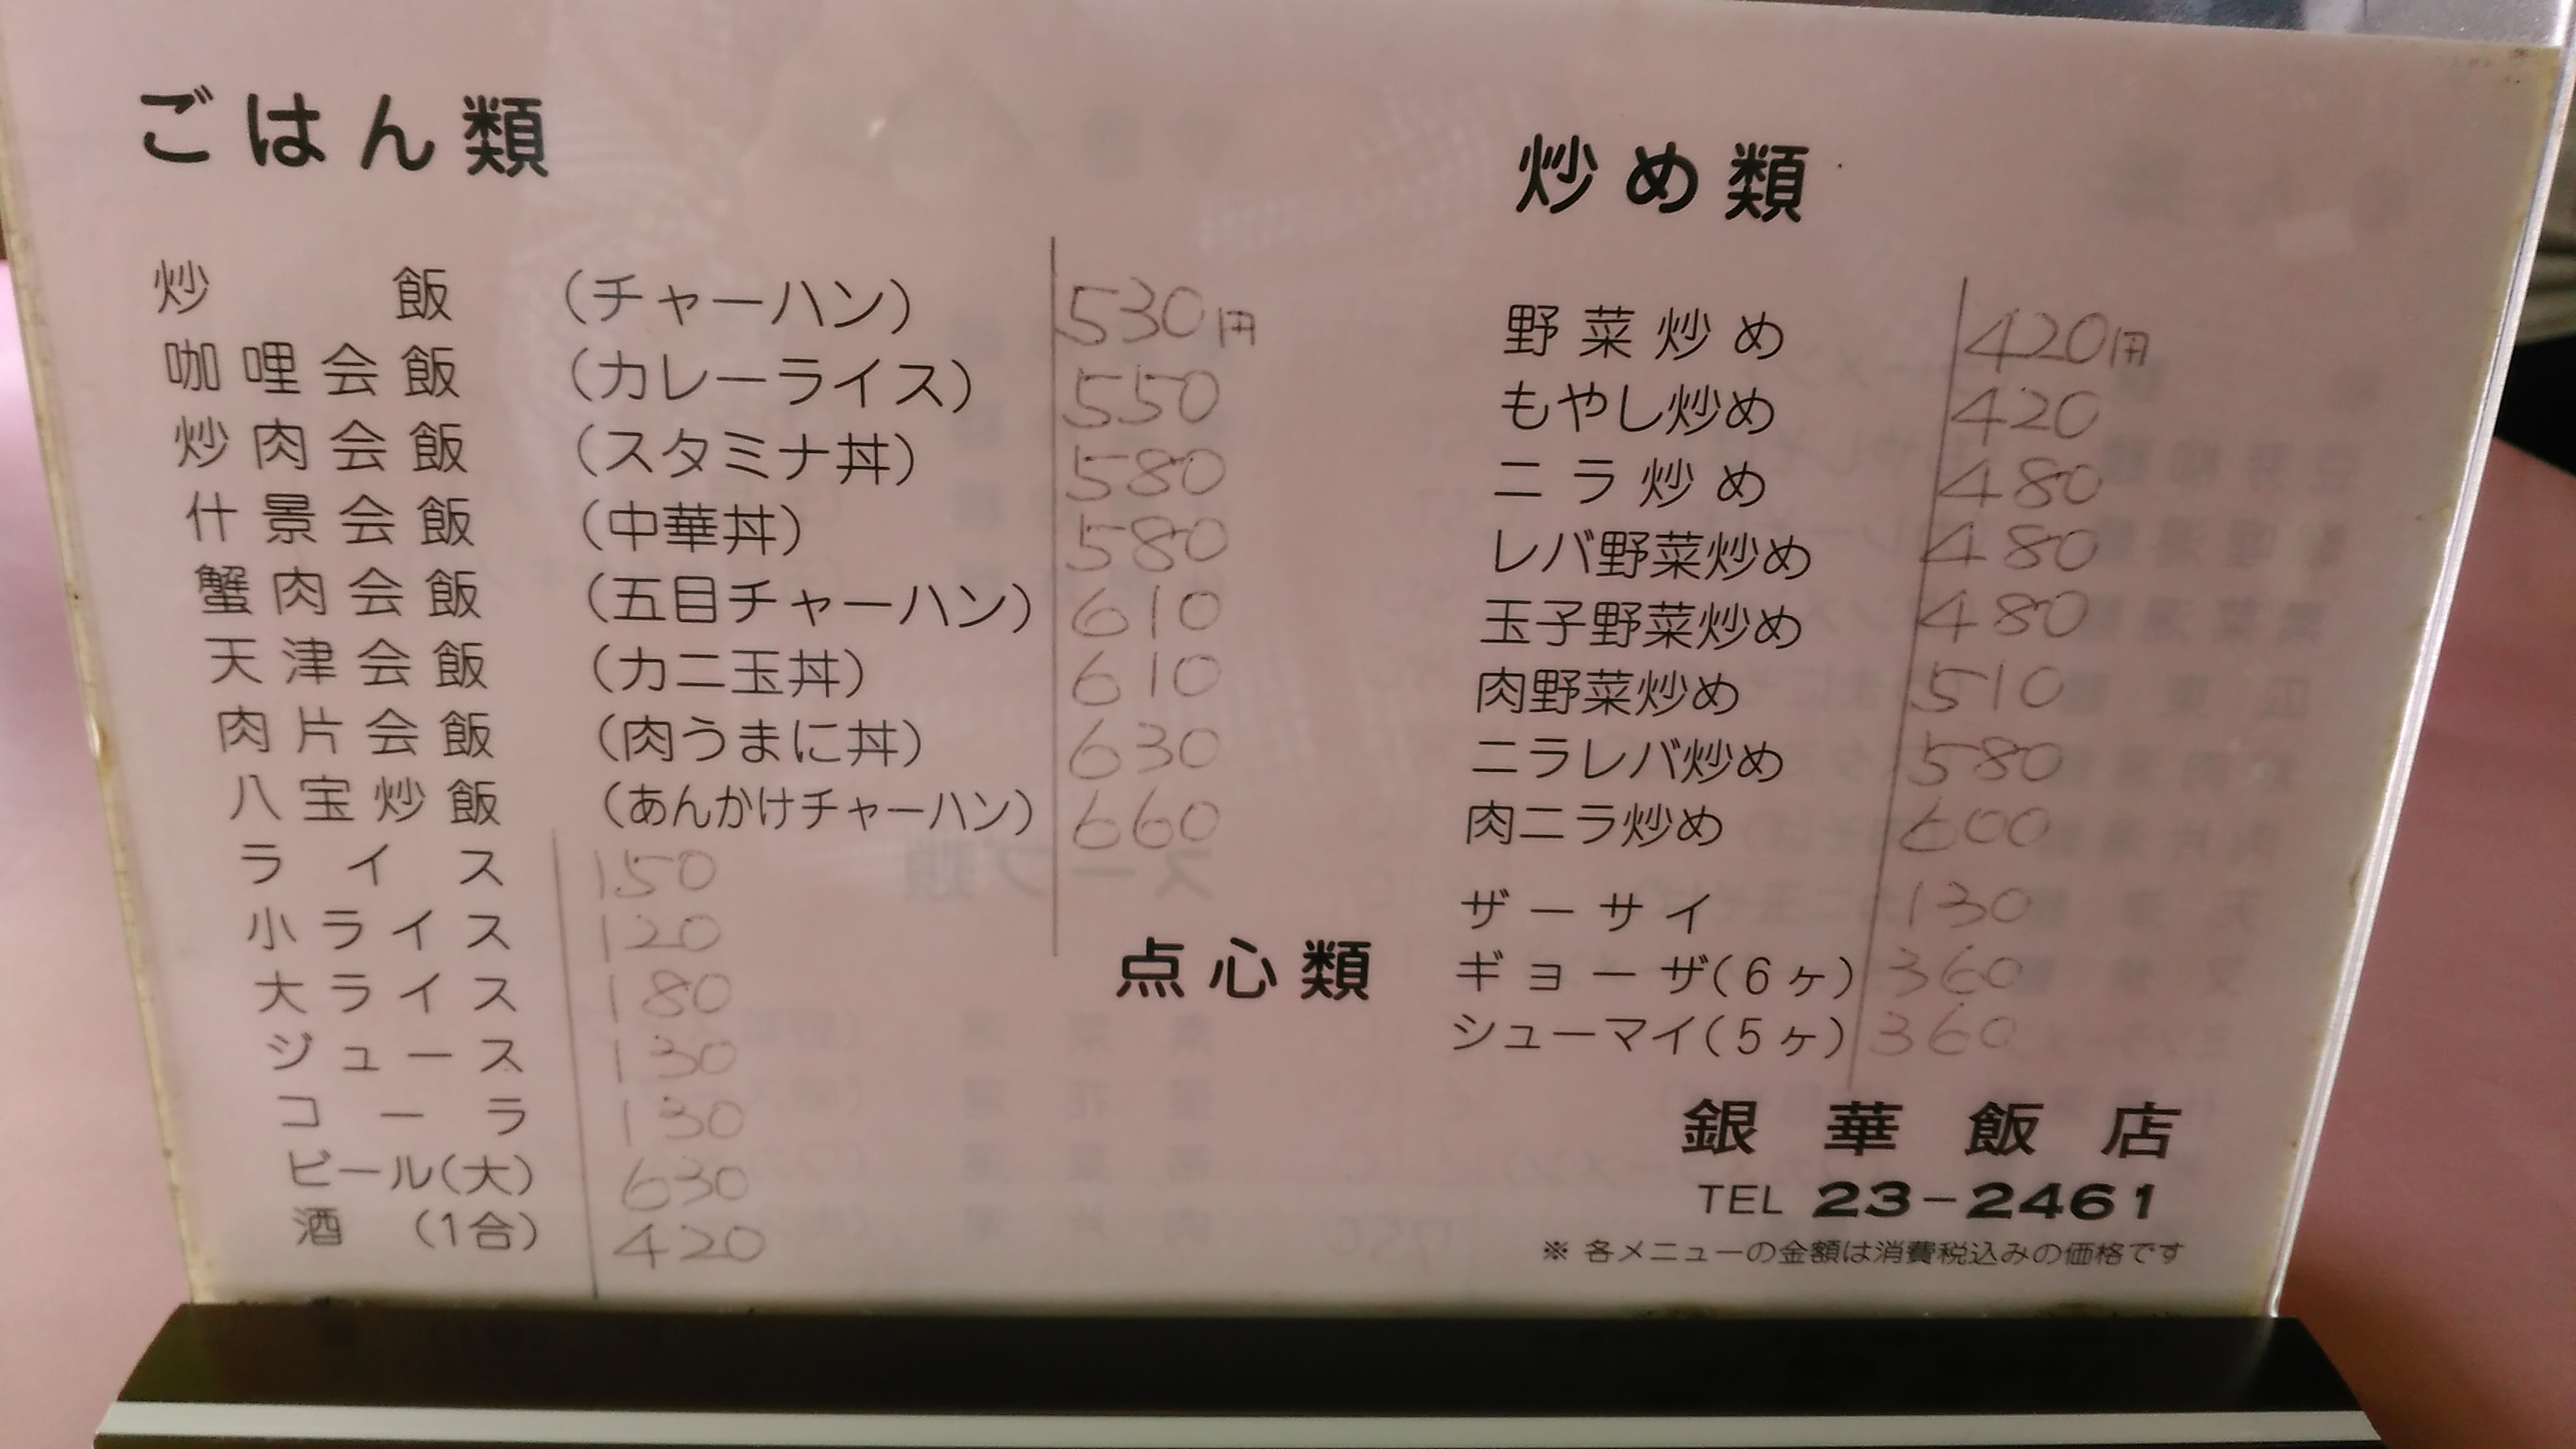 ごはん類
炒飯 (チャーハン) 530円
咖哩会飯 (カレーライス) 550
炒肉会飯 (スタミナ丼) 580
什景会飯 (中華丼) 580
蟹肉会飯 (五目チャーハン) 610
天津会飯 (カニ玉丼) 610
肉片会飯 (肉うまに丼) 630
八宝炒飯 (あんかけチャーハン) 660
ライス 150
小ライス 120
大ライス 180
ジュース 130
コーラ 130
ビール(大) 630
酒 (1合) 420
炒め類
野菜炒め 420円
もやし炒め 420
ニラ炒め 480
レバ野菜炒め 480
玉子野菜炒め 480
肉野菜炒め 510
ニラレバ炒め 580
肉ニラ炒め 600
点心類
ザーサイ 130
ギョーザ(6ヶ) 360
シューマイ(5ヶ) 360
銀華飯店
TEL 23-2461
※ 各メニューの金額は消費税込みの価格です